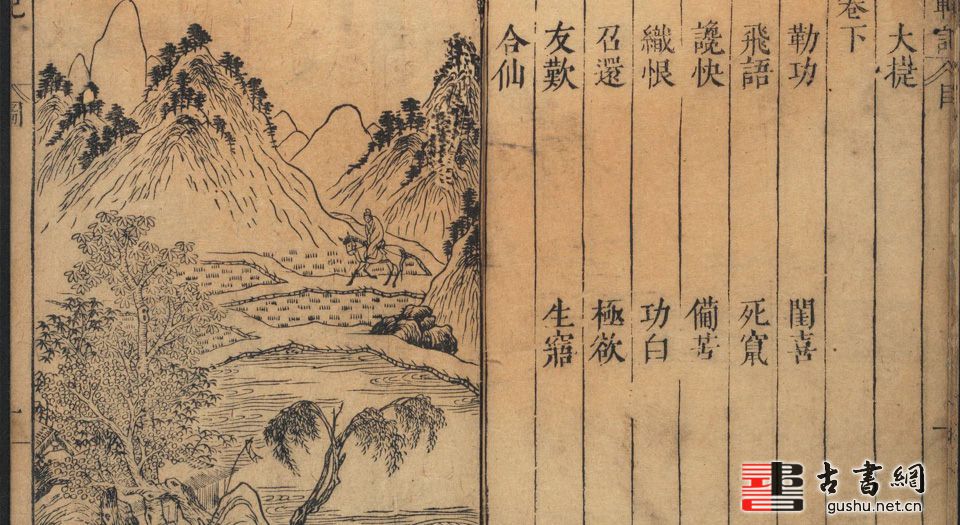 大捷
卷下
勒功 閨喜
飛語 死竄
讒快 備苦
織恨 功白
召還 極欲
友歎 生寤
合仙
記
圖
一
目
一
古書網
gushu.net.cn